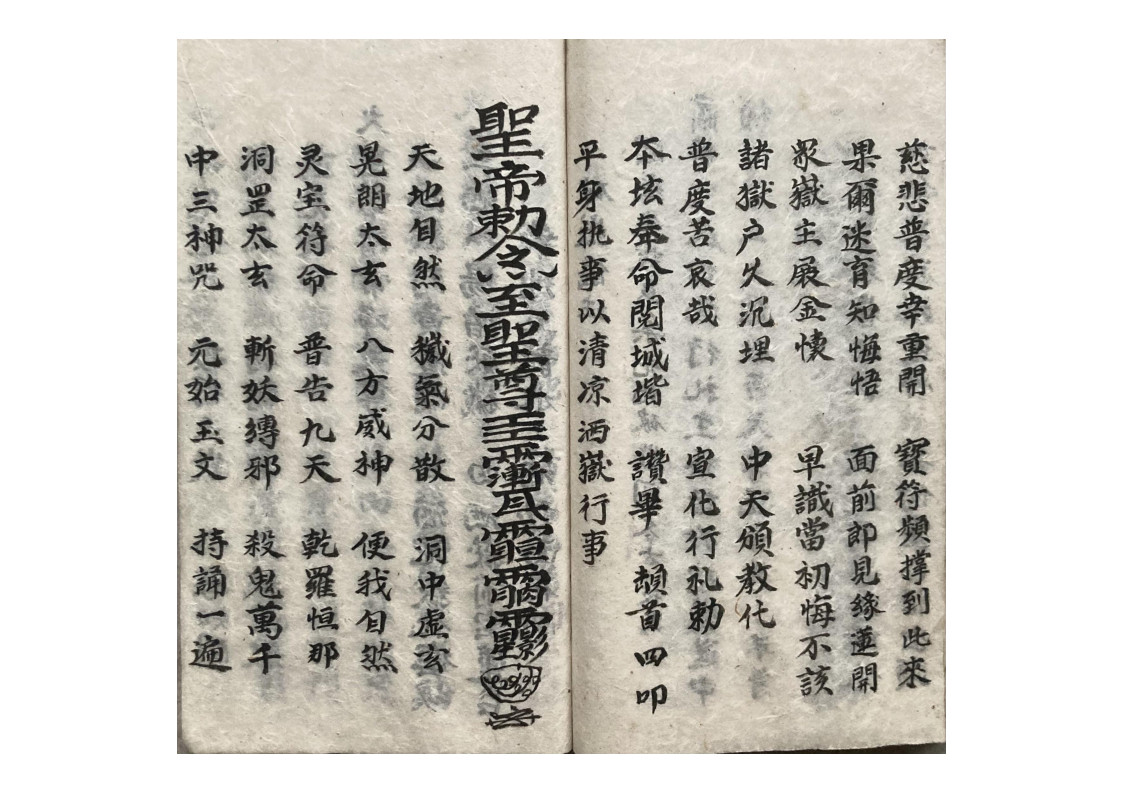 慈悲普度幸重開 寶符頻撑到此來
果爾迷育知悔悟 面前即見緣蓮開
眾嶽主展金懷 早識當初悔不該
諸獄户久沉埋 中天頒教化
普度苦哀哉 宣化行礼勅
本坛奉命閲城堦 讚畢 頡首四叩
平身执事以清凉洒嶽行事
聖帝勅令至聖尊
天地自然 穢氣分散 洞中虛玄
晃朗太玄 八方威神 便我自然
灵宝符命 普告九天 乾羅恒那
洞罡太玄 斬妖縛邪 殺鬼萬千
中三神咒 元始玉文 持誦一遍